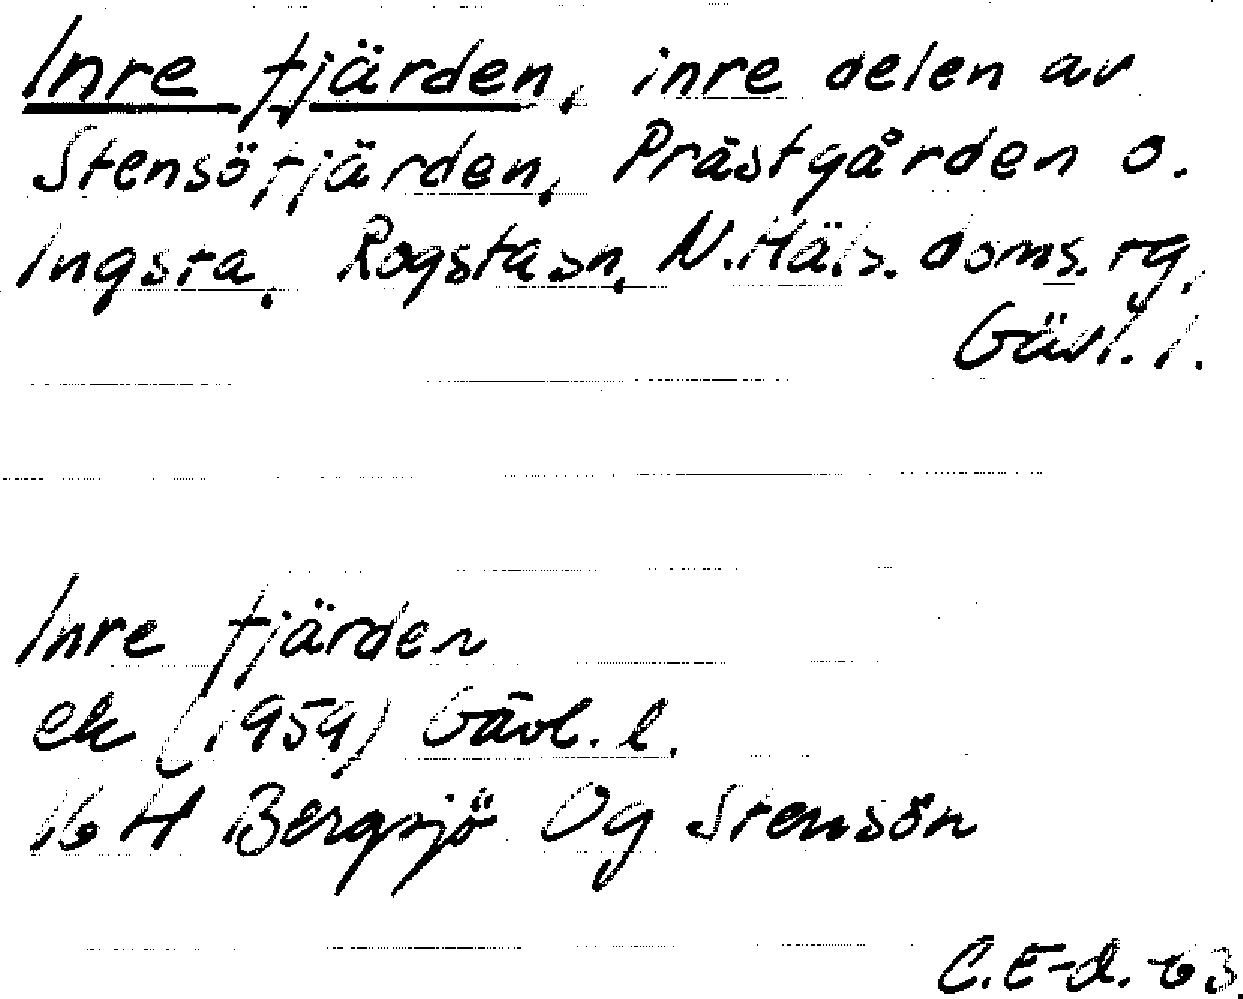 Inre fjärden, inre delen av
Stensöfjärden, Prästgården o.
Ingsta, Rogsta sn, N. Häls. doms. tg,
Gävl. l.
Inre fjärden
ek (1959) Gävl. l.
16 H Bergsjö Og Stensön
C.E-d. -63.